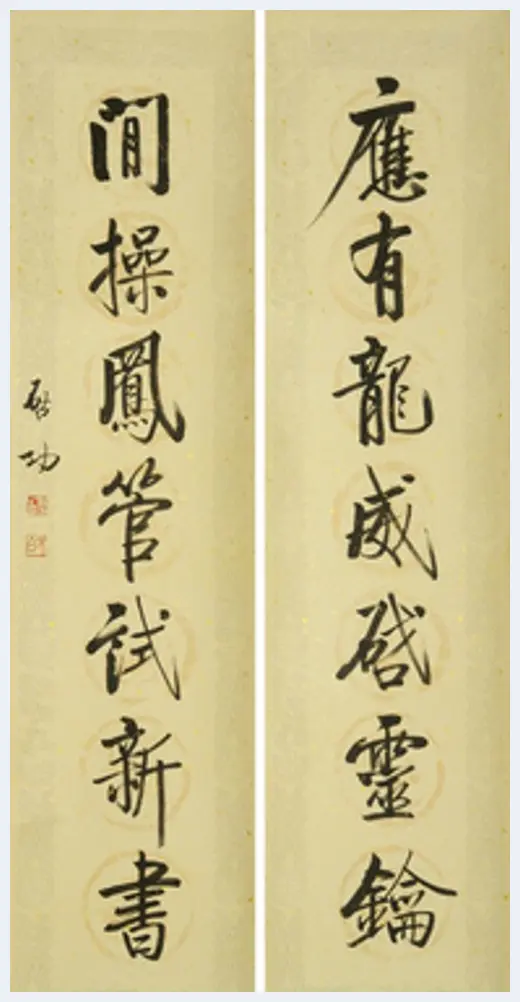 應有龍威啟靈鑰
閒操鳳管試新書
啟功